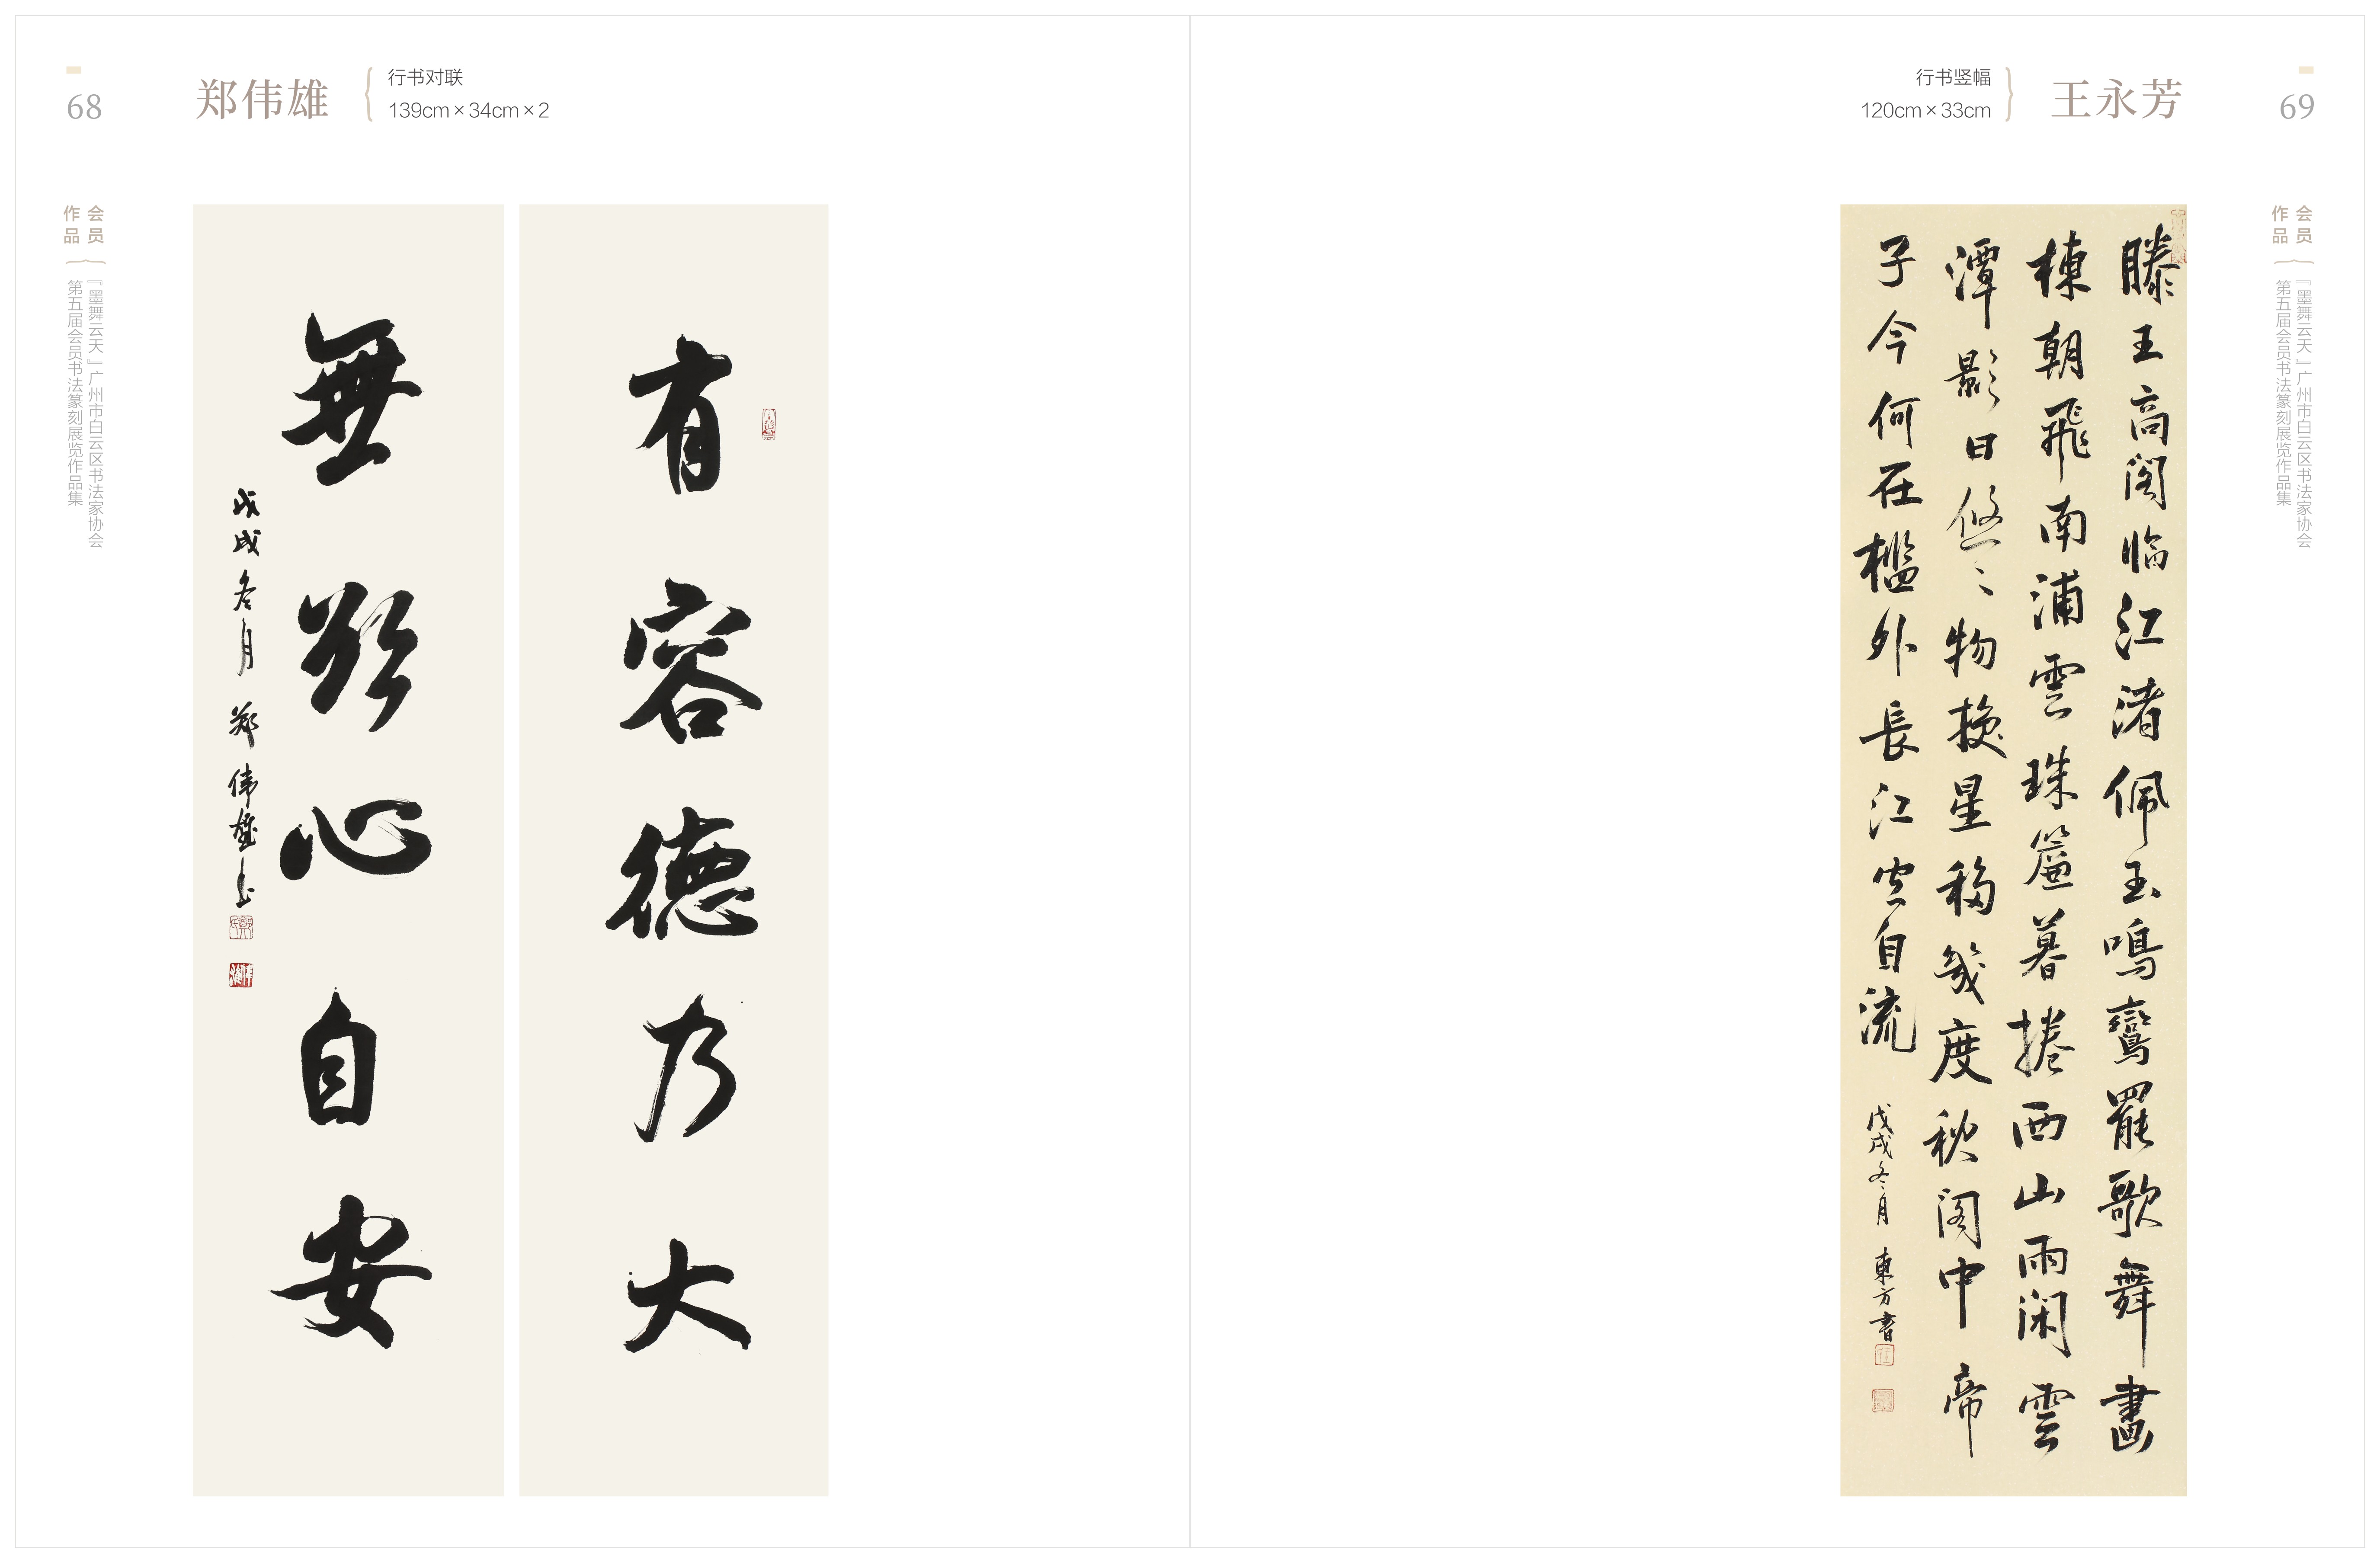 68
郑伟雄
行书对联
139cm×34cm×2
会员
作品
『墨舞云天』广州市白云区书法家协会
第五届会员书法篆刻展览作品集
有容德乃大
無欺心自安
戊戌冬月 鄭偉雄书
69
王永芳
行书竖幅
120cm×33cm
会员
作品
『墨舞云天』广州市白云区书法家协会
第五届会员书法篆刻展览作品集
滕王高阁临江渚佩玉鳴鸞罷歌舞畫
棟朝飛南浦雲珠簾暮捲西山雨闲雲
潭影日悠〻物換星移幾度秋阁中帝
子今何在檻外長江空自流
戊戌冬月 東方書